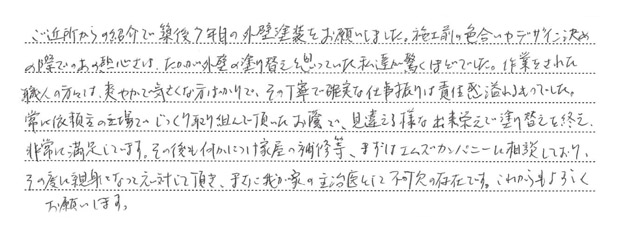 ご近所からの紹介で築後7年目の外壁塗装をお願いしました。施工前の色合いやデザイン決め
の際でのあの熱心さは、たかが外壁の塗り替えと思っていた私達が驚くほどでした。作業をされた
職人の方々は、爽やかで気さくな方ばかりで、その丁寧で確実な仕事振りは責任感溢れるものでした。
常に依頼主の立場でじっくり取り組んで頂いたお陰で、見違える様な出来栄えで塗り替えを終え、
非常に満足しています。その後も何かにつけ家屋の補修等、まずはエムズカンパニーに相談しており、
その度に親身になって応対して頂き、まさに我が家の主治医として不可欠の存在です。これからもよろしく
お願いします。